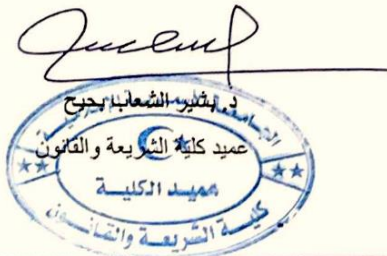 د. بشير الشعاب بحيح
عميد كلية الشريعة والقانون
عميد الكلية
كلية الشريعة والقانون